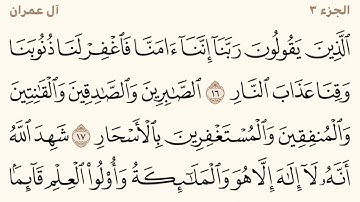 الجزء ٣
آل عمران
ٱلَّذِينَ يَقُولُونَ رَبَّنَآ إِنَّنَآ ءَامَنَّا فَٱغْفِرْ لَنَا ذُنُوبَنَا
وَقِنَا عَذَابَ ٱلنَّارِ ١٦ ٱلصَّـٰبِرِينَ وَٱلصَّـٰدِقِينَ وَٱلْقَـٰنِتِينَ
وَٱلْمُنفِقِينَ وَٱلْمُسْتَغْفِرِينَ بِٱلْأَسْحَارِ ١٧ شَهِدَ ٱللَّهُ
أَنَّهُۥ لَآ إِلَـٰهَ إِلَّا هُوَ وَٱلْمَلَـٰٓئِكَةُ وَأُو۟لُوا۟ ٱلْعِلْمِ قَآئِمًۢا